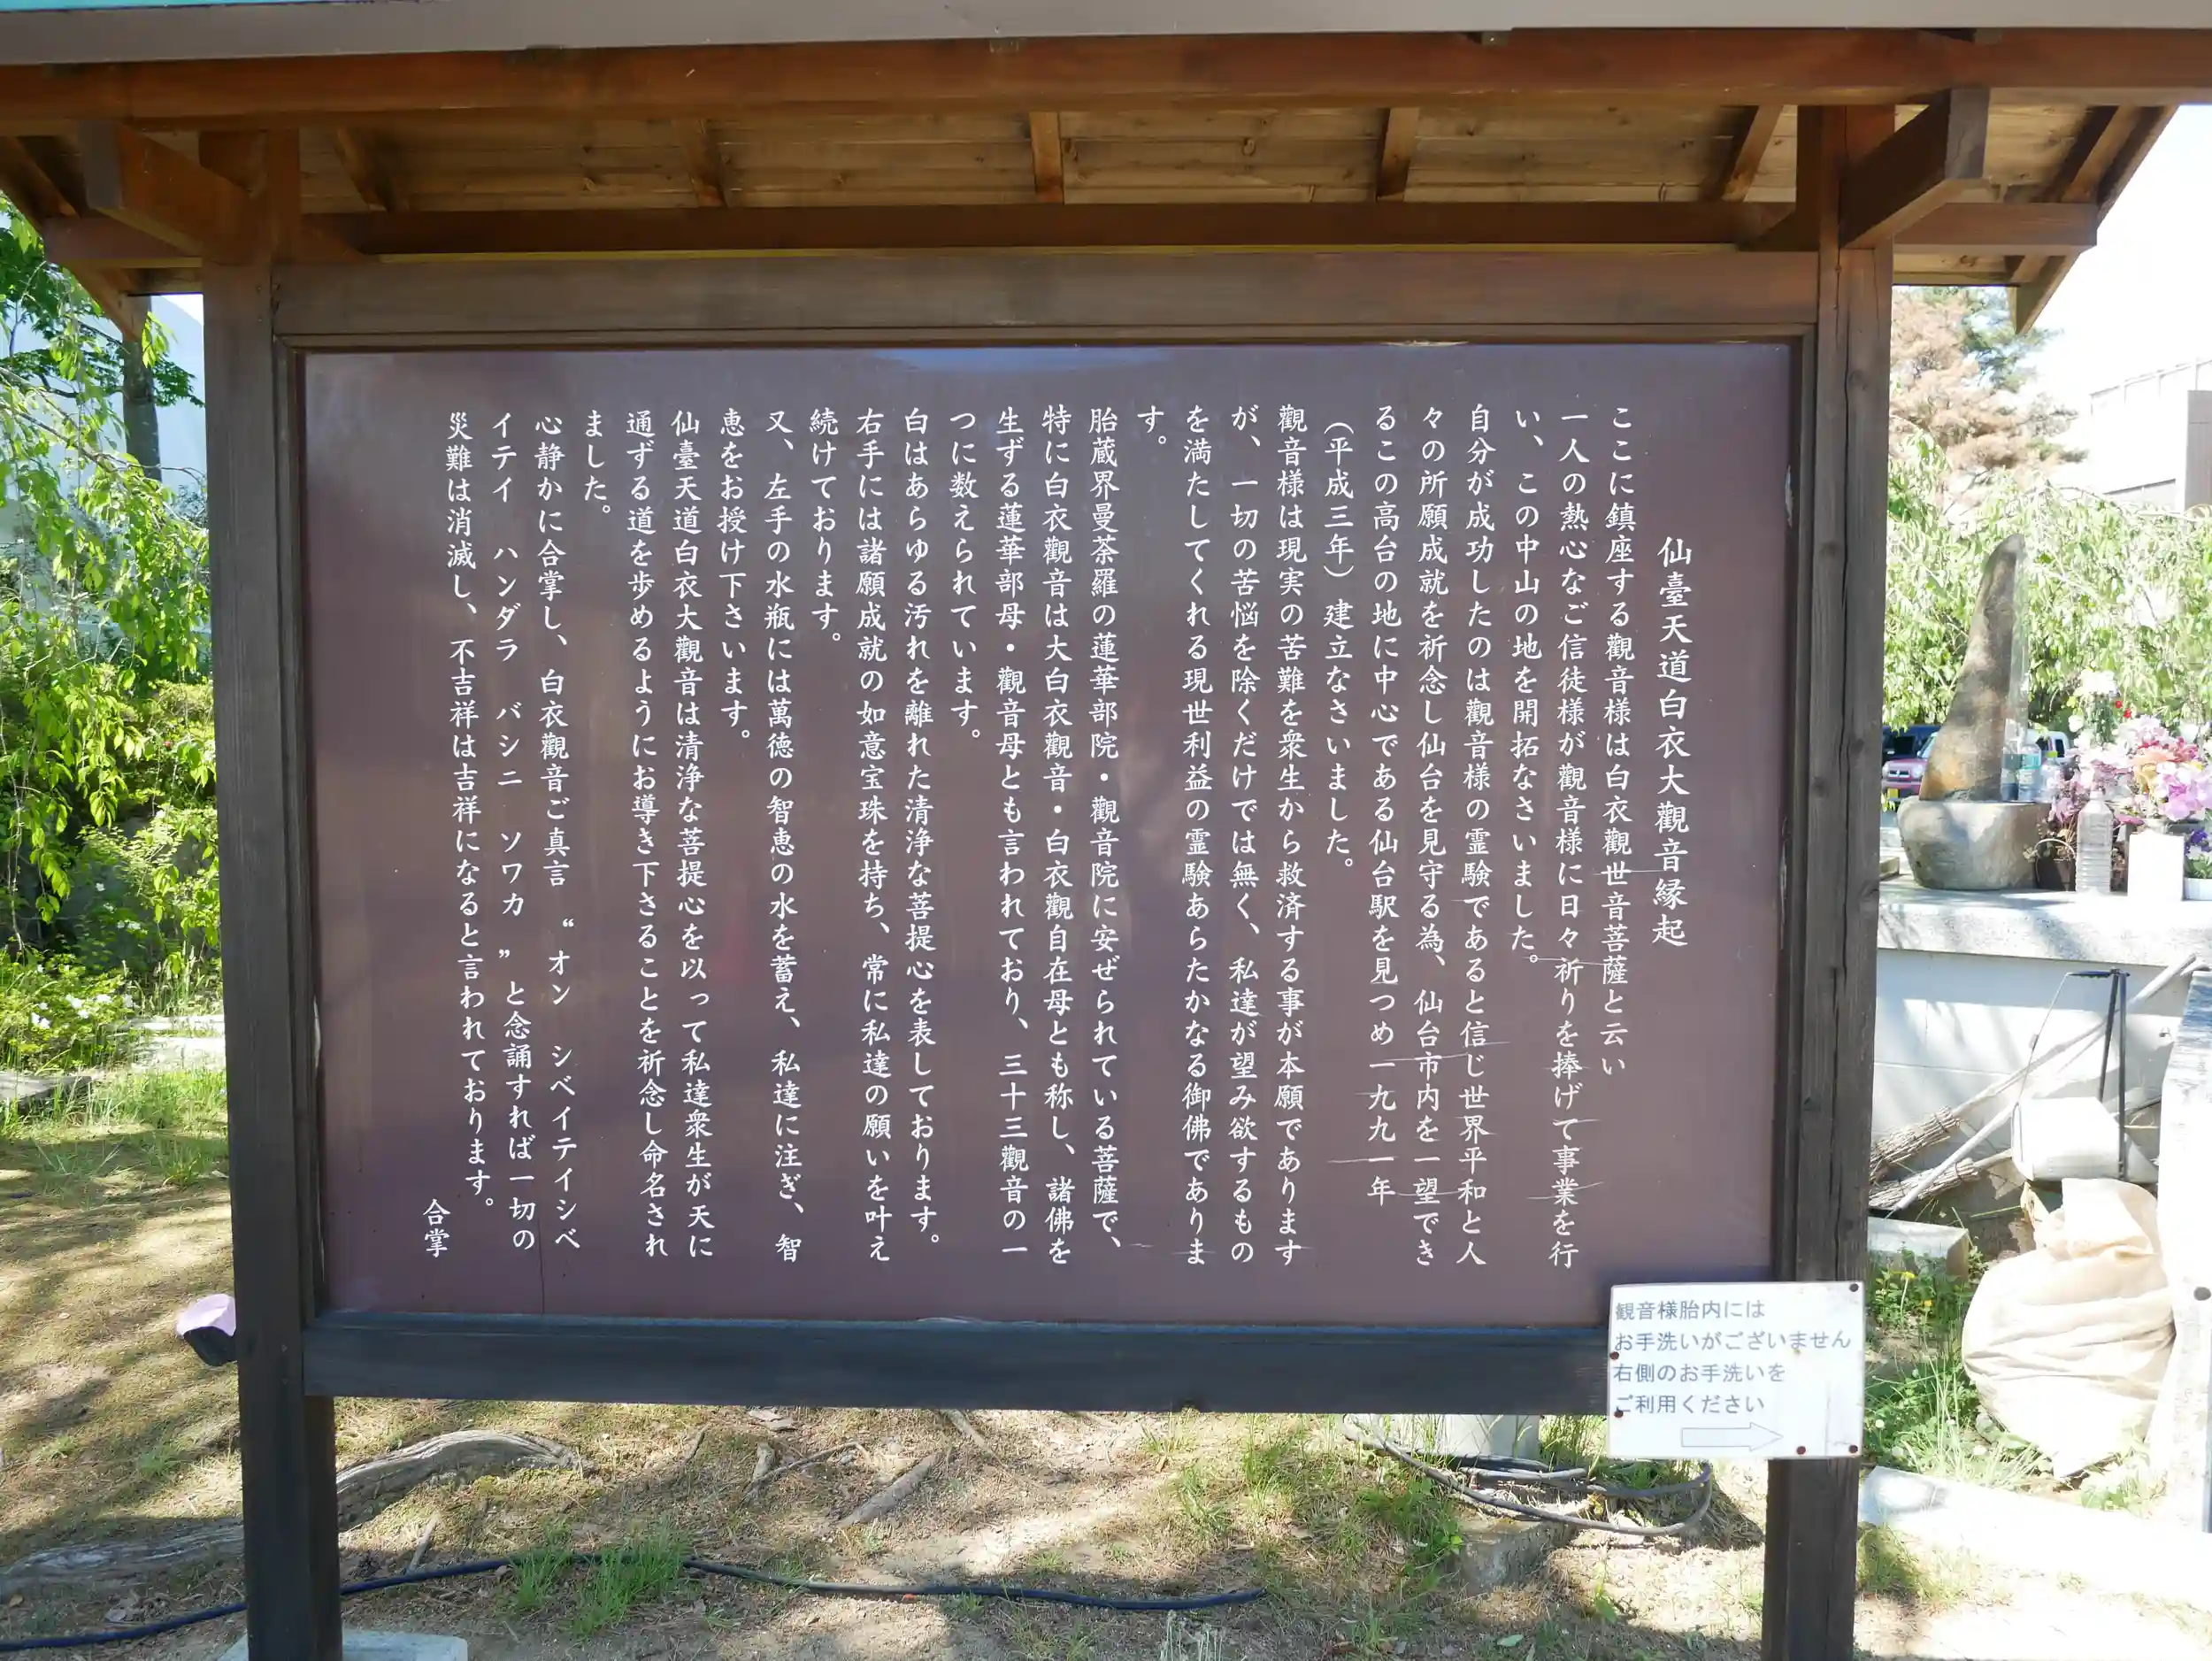 仙臺天道白衣大觀音縁起
ここに鎮座する觀音様は白衣觀世音菩薩と云い
一人の熱心なご信徒様が觀音様に日々祈りを捧げて事業を行
い、この中山の地を開拓なさいました。
自分が成功したのは觀音様の霊験であると信じ世界平和と人
々の所願成就を祈念し仙台を見守る為、仙台市内を一望でき
るこの高台の地に中心である仙台駅を見つめ一九九一年
（平成三年）建立なさいました。
觀音様は現実の苦難を衆生から救済する事が本願であります
が、一切の苦悩を除くだけでは無く、私達が望み欲するもの
を満たしてくれる現世利益の霊験あらたかなる御佛でありま
す。
胎蔵界曼荼羅の蓮華部院・觀音院に安ぜられている菩薩で、
特に白衣觀音は大白衣觀音・白衣觀自在母とも称し、諸佛を
生ずる蓮華部母・觀音母とも言われており、三十三觀音の一
つに数えられています。
白はあらゆる汚れを離れた清浄な菩提心を表しております。
右手には諸願成就の如意宝珠を持ち、常に私達の願いを叶え
続けております。
又、左手の水瓶には萬徳の智恵の水を蓄え、私達に注ぎ、智
恵をお授け下さいます。
仙臺天道白衣大觀音は清浄な菩提心を以って私達衆生が天に
通ずる道を歩めるようにお導き下さることを祈念し命名され
ました。
心静かに合掌し、白衣觀音ご真言　“オン　シベイテイシベ
イテイ　ハンダラ　バシニ　ソワカ　”と念誦すれば一切の
災難は消滅し、不吉祥は吉祥になると言われております。
合掌
観音様胎内には
お手洗いがございません
右側のお手洗いを
ご利用ください